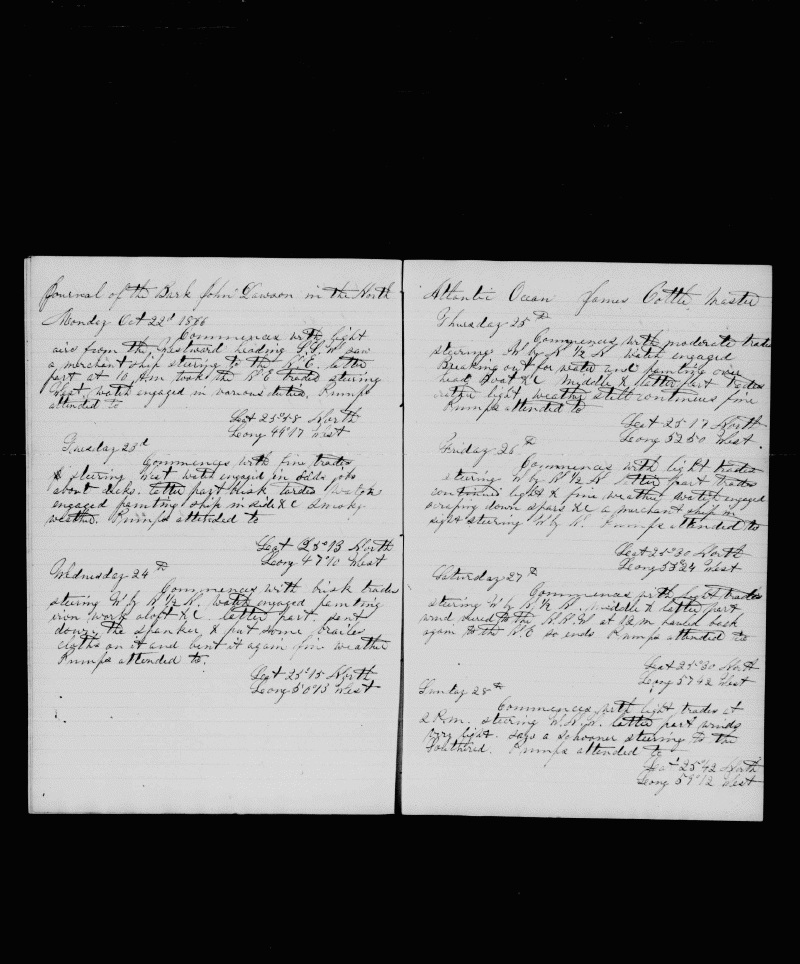 Journal of the Bark John Dawson in the North
Monday Oct 22d 1866
Commences with light
airs from the Westward heading S.S.W saw
a merchant ship steering to the N.E. latter
part at 10 A.m took the N E trades steering
West, watch engaged in various duties, Pumps
attended to
Lat 25°58 North
Long 44°17 West
Tuesday 23d
Commences with fine trades
& steering West watch engaged in odds jobs
about decks. latter part brisk tardes watch
engaged painting ship inside &C Smoky
weather. Pumps attended to
Lat 25°13 North
Long 47°10 West
Wednesday 24th
Commences with brisk trades
steering W by N 1/2 N. watch engaged painting
iron work aloft &C. latter part. sent
down the spanker & put some brailes
cloths on it and bent it again fine weather
Pumps attended to.
Lat 25°15 North
Long 50°13 West
Atlantic Ocean James Cottle Master
Thursday 25th
Commences with moderate trades
steering W by N 1/2 N watch engaged
Breaking out for water and painting over
head Boat &C Middle & latter part trades
rather light weather still continues fine
Pumps attended to
Lat 25°17 North
Long 52°50 West
Friday 26th
Commences with light trades
steering W by N 1/2 N latter part trades
continued light & fine weather watch engaged
scraping down spars &C a merchant ship in
sight steering W by N. Pumps attended to
Lat 25°30 North
Long 55°24 West
Saturday 27th
Commences with light trades
steering W by N 1/2 N. Middle & latter part
wind vered to the N.N.W at 12 m hauled back
again to the N E so ends Pumps attended to
Lat 25°30 North
Long 57°42 West
Sunday 28th
Commences with light trades at
2 P.m. steering W.N.W. latter part winds
very light. saw a schooner steering to the
Southered. Pumps attended to
Lat 25°42 North
Long 59°12 West